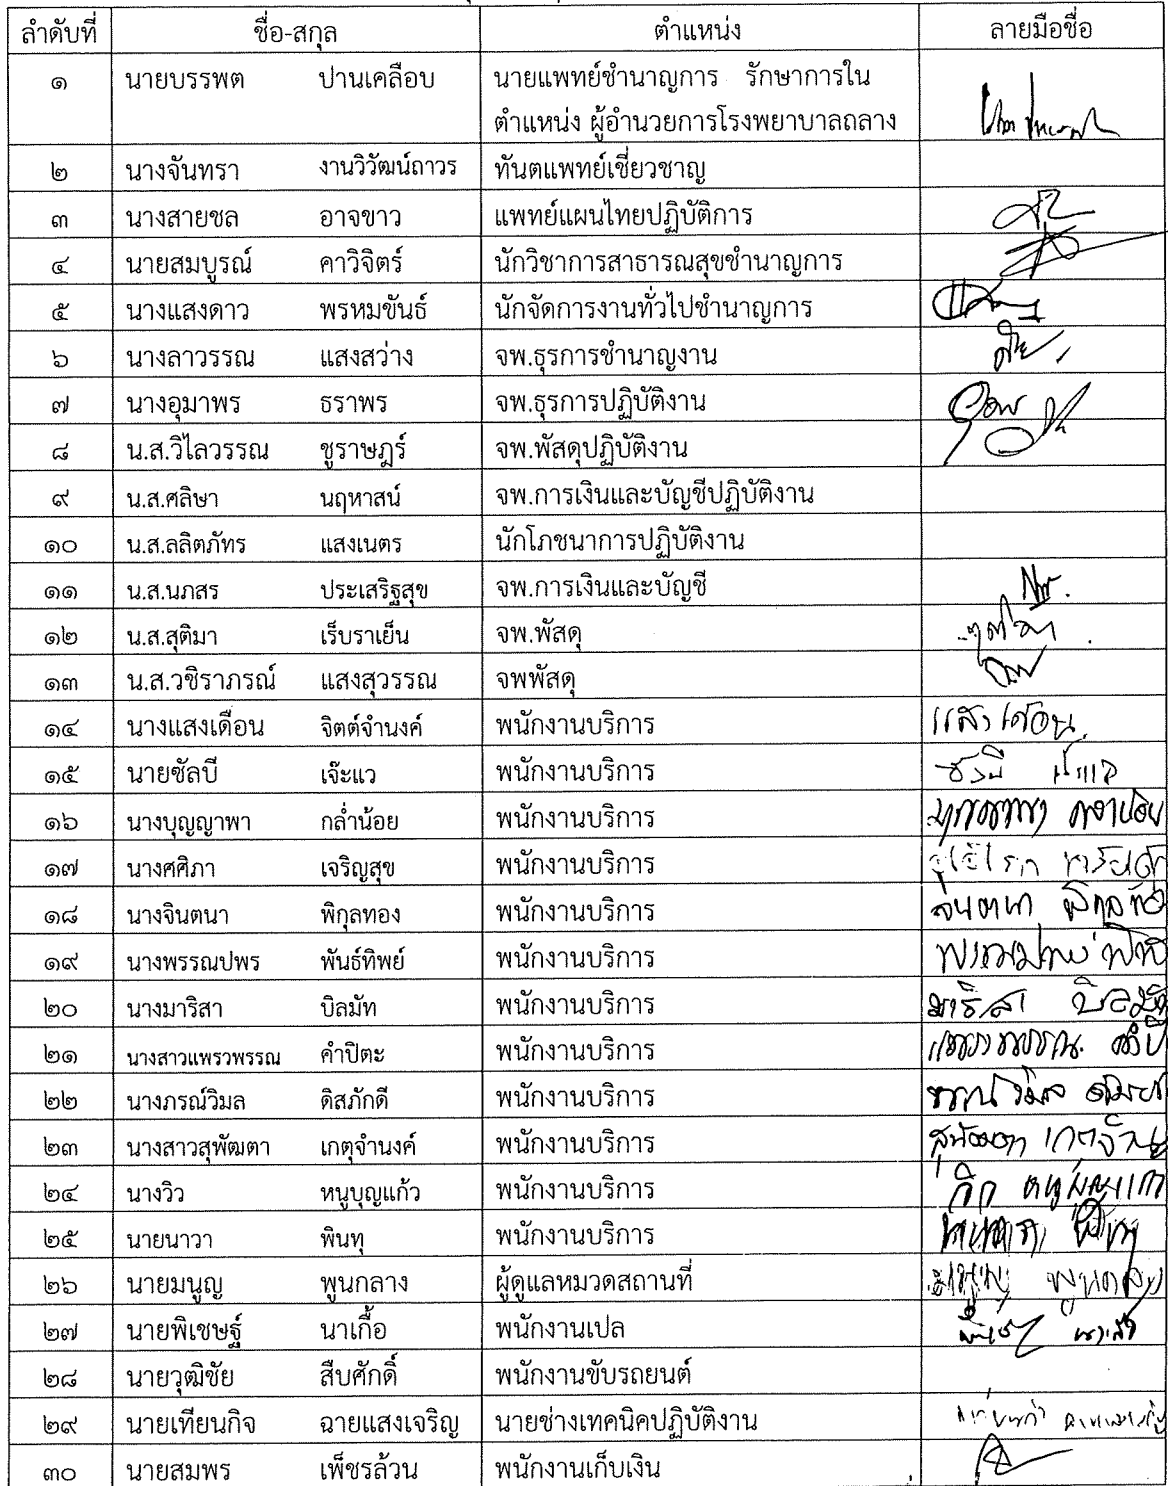 ลำดับที่ ชื่อ-สกุล ตำแหน่ง ลายมือชื่อ
๑ นายบรรพต ปานเคลือบ นายแพทย์ชำนาญการ รักษาการใน
ตำแหน่ง ผู้อำนวยการโรงพยาบาลถลาง
๒ นางจันทรา งานวิวัฒน์ถาวร ทันตแพทย์เชี่ยวชาญ
๓ นางสายชล อาจขาว แพทย์แผนไทยปฏิบัติการ
๔ นายสมบูรณ์ คาวิจิตร์ นักวิชาการสาธารณสุขชำนาญการ
๕ นางแสงดาว พรหมขันธ์ นักจัดการงานทั่วไปชำนาญการ
๖ นางลาวรรณ แสงสว่าง จพ.ธุรการชำนาญงาน
๗ นางอุมาพร ธราพร จพ.ธุรการปฏิบัติงาน
๘ น.ส.วิไลวรรณ ชูราษฎร์ จพ.พัสดุปฏิบัติงาน
๙ น.ส.ศลิษา นฤหาสน์ จพ.การเงินและบัญชีปฏิบัติงาน
๑๐ น.ส.ลลิตภัทร แสงเนตร นักโภชนาการปฏิบัติงาน
๑๑ น.ส.นภสร ประเสริฐสุข จพ.การเงินและบัญชี
๑๒ น.ส.สุติมา เร็บราเย็น จพ.พัสดุ
๑๓ น.ส.วชิราภรณ์ แสงสุวรรณ จพพัสดุ
๑๔ นางแสงเดือน จิตต์จำนงค์ พนักงานบริการ แสงเดือน
๑๕ นายซัลบี เจ๊ะแว พนักงานบริการ
๑๖ นางบุญญาพา กล่ำน้อย พนักงานบริการ
๑๗ นางศศิภา เจริญสุข พนักงานบริการ
๑๘ นางจินตนา พิกุลทอง พนักงานบริการ จินตนา พิกุลทอง
๑๙ นางพรรณปพร พันธ์ทิพย์ พนักงานบริการ
๒๐ นางมาริสา บิลมัท พนักงานบริการ มาริสา บิลมัท
๒๑ นางสาวแพรวพรรณ คำปิตะ พนักงานบริการ
๒๒ นางภรณ์วิมล ดิสภักดี พนักงานบริการ
๒๓ นางสาวสุพัฒตา เกตุจำนงค์ พนักงานบริการ
๒๔ นางวิว หนูบุญแก้ว พนักงานบริการ
๒๕ นายนาวา พินทุ พนักงานบริการ
๒๖ นายมนูญ พูนกลาง ผู้ดูแลหมวดสถานที่
๒๗ นายพิเชษฐ์ นาเกื้อ พนักงานเปล
๒๘ นายวุฒิชัย สืบศักดิ์ พนักงานขับรถยนต์
๒๙ นายเทียนกิจ ฉายแสงเจริญ นายช่างเทคนิคปฏิบัติงาน
๓๐ นายสมพร เพ็ชรล้วน พนักงานเก็บเงิน